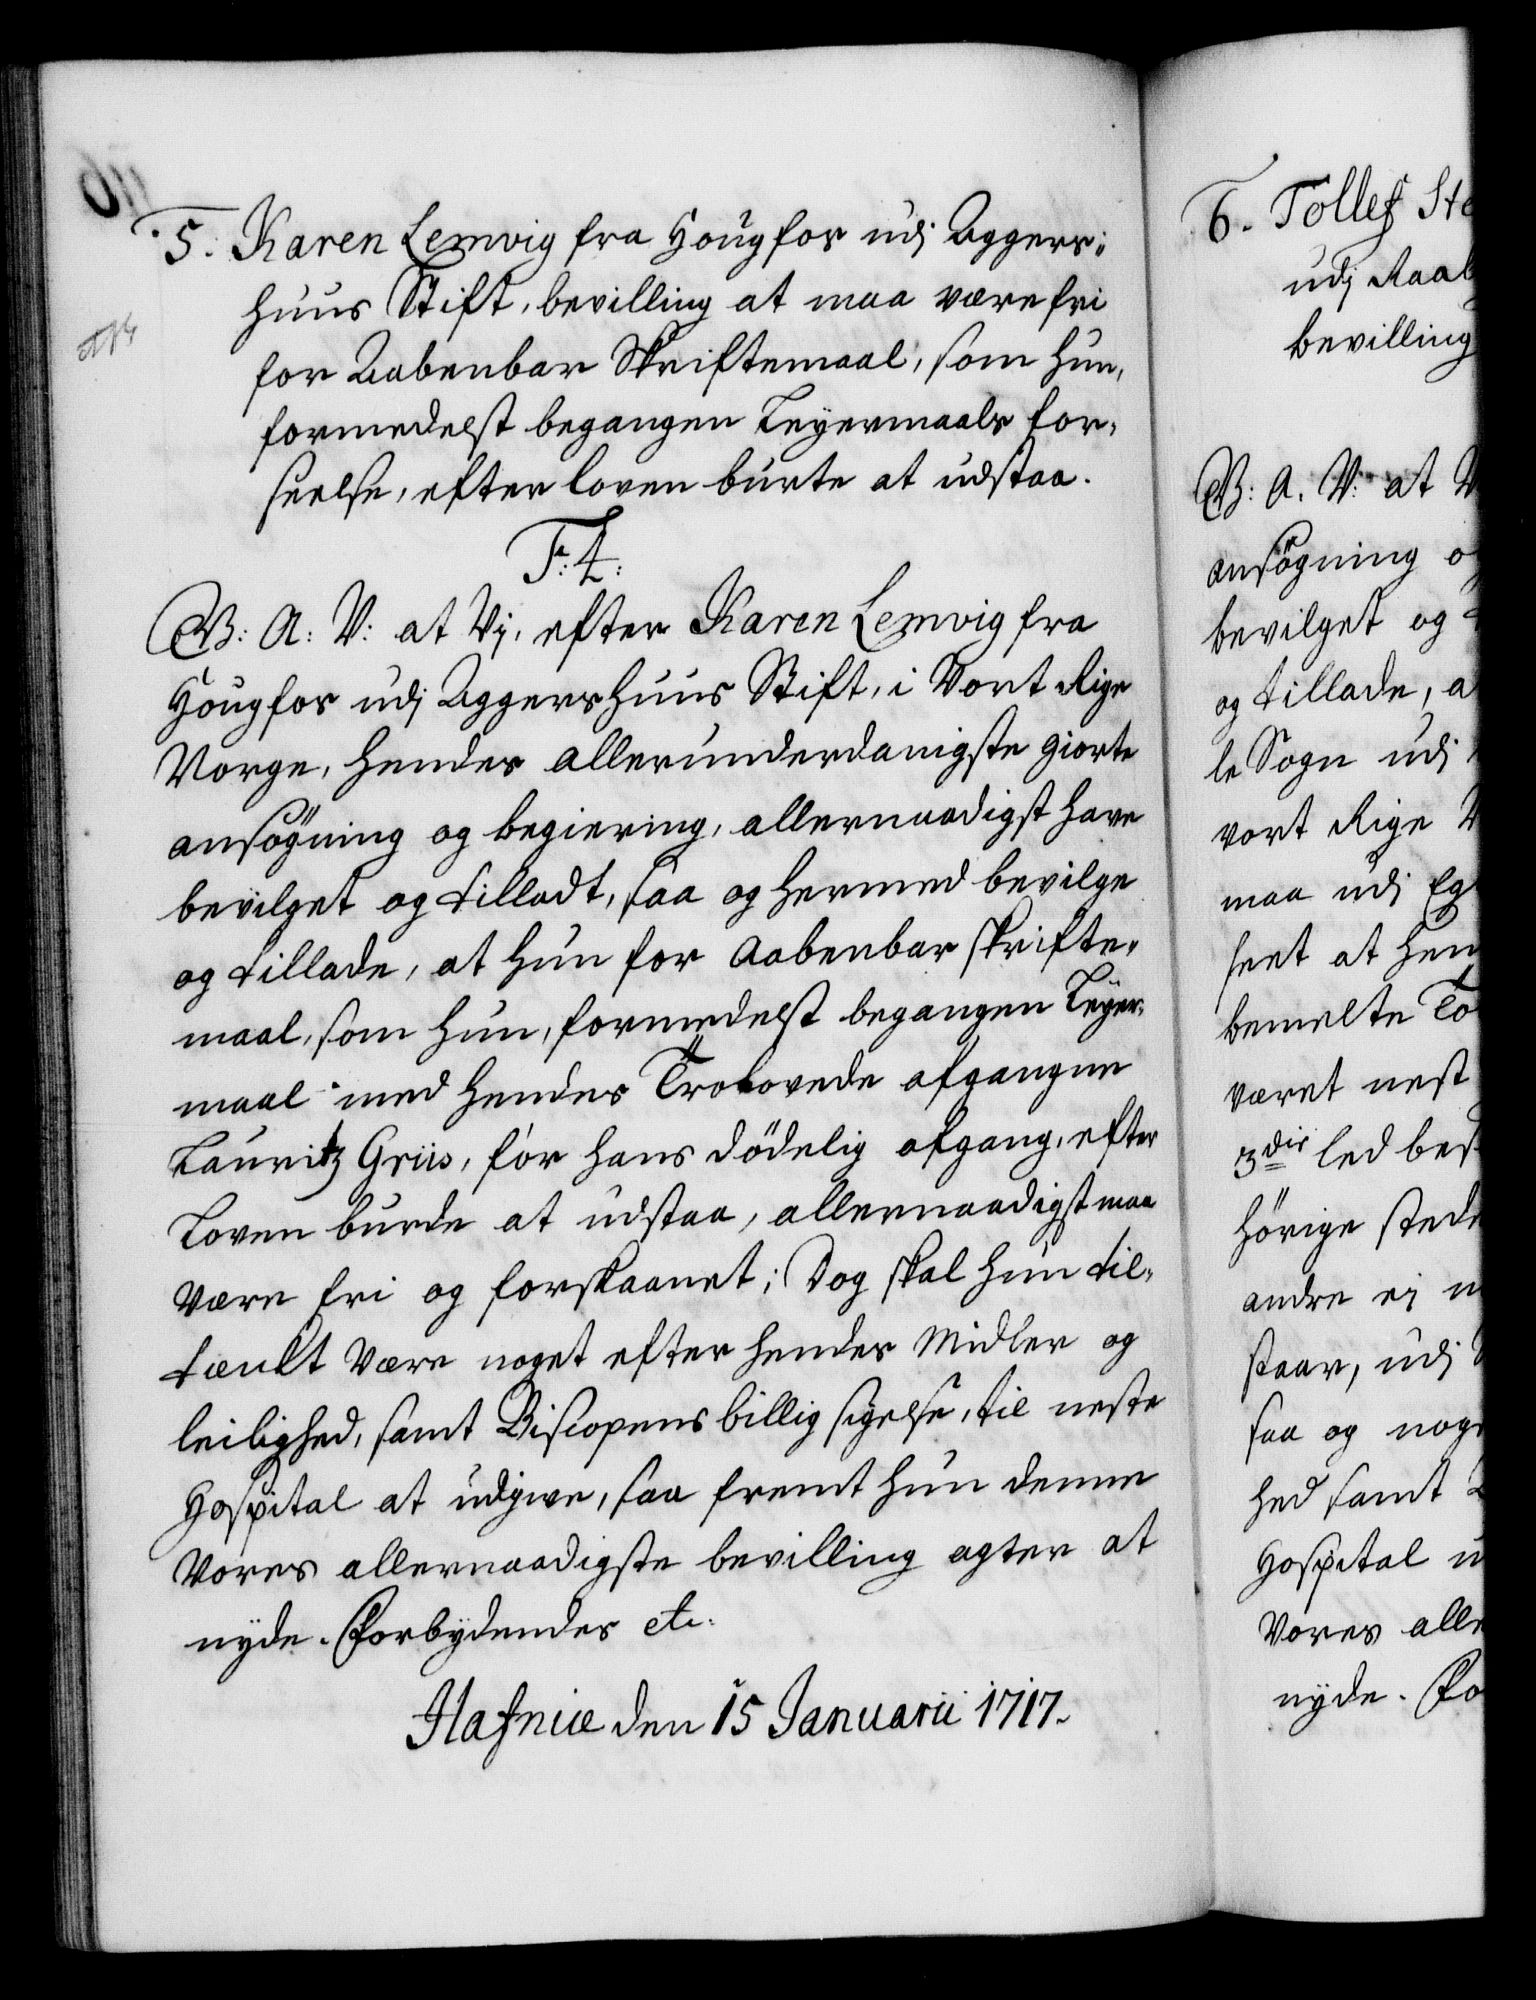 5. Karen Lemvig fra Hougfos udj Aggers:
huus Stift, bevilling at maa være fri
for Aabenbar Skriftemaal, som hun,
formedelst begangen Leyermaals for,
seelse, efter loven burte at udstaa.
F: 4.
G: A: V: at Vj, efter Karen Lemvig fra
Hougfos udj Aggershuus Stift, i Vort Rige
Norge, hendes allerunderdanigste giorte
ansøgning og begiering, allernaadigst have
bevilget og tilladt, saa og hermed bevilge
og tillade, at hun for Aabenbar skrifte,
maal, som hun, formedelst begangen Leyer,
maal med hendes Trolovede afgangne
Lauritz Griis, før hans dødelig afgang, efter
Loven burde at udstaa, allernaadigst maa
være fri og forskaanet; Dog skal hun til,
tænkt være noget efter hendes Midler og
leilighed, samt Biscopens billig sigelse, til neste
Hospital at udgive, saa fremt hun denne
Vores allernaadigste bevilling agter at
nyde. Forbydendes etc.
Hafniæ den 15 Januarii 1717.
6. Tollef Ste
udj Raab
bevilling
G: A. V: at V
ansøgning o
bevilget og
og tillade, a
le Sogn udj
vort Rige
maa udj Eg
seet at hen
bemelte To
været nest
3die led bes
hörige stede
andre ej
staar, udj
saa og noge
hed samt
Hospital u
Vores alle
nyde. Fo